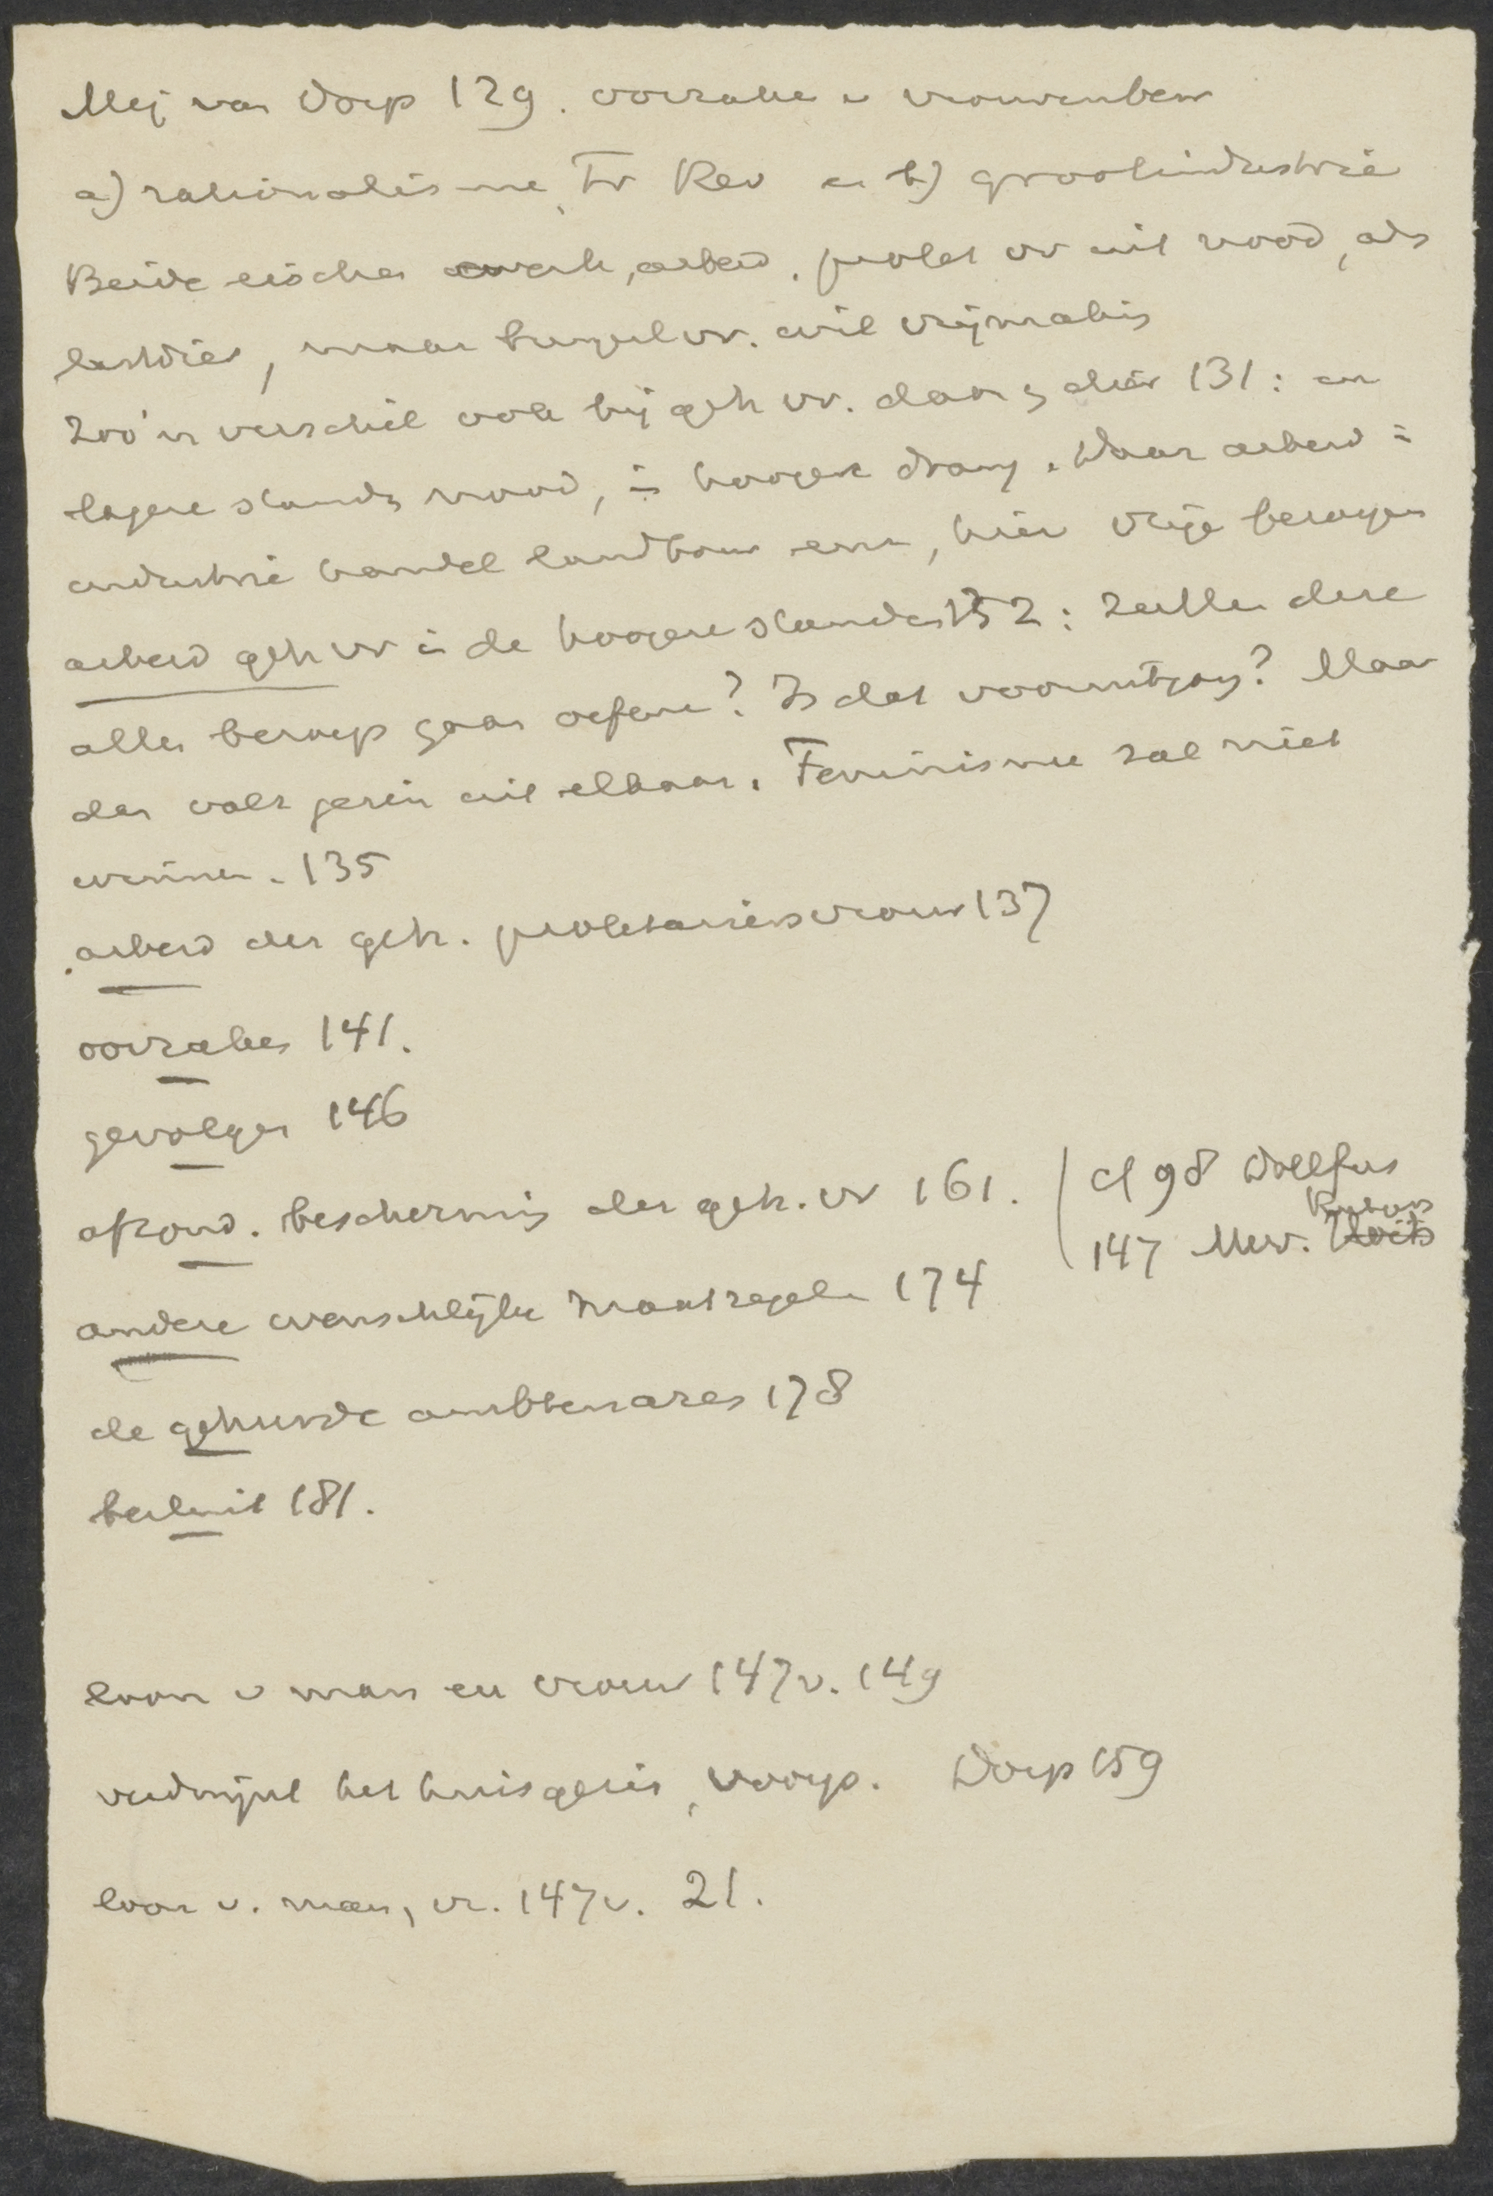 Mej van Dorp 129. oorzake v vrouwenbew
a) rationalisme, Fr Rev en b) grootindustrie
Beide eischen werk, arbeid. prolet vr uit nood, als
lastdier, maar burgerl vr. wil vrijmaking
Zoo'n verschil ook bij geh vr. daar, hier 131: in
lagere stands nood, in hoogere drang. Daar arbeid in
industrie handel landbouw enz, hier vrije beroepen
arbeid geh vr in de hoogere standen 132: zullen deze
allen beroep gaan oefenen? Is dat vooruitgang? Maar
dan valt gezin uit elkaar. Feminisme zal niet
winnen. 135
arbeid der geh. proletariersvrouw 137
oorzaken 141.
gevolgen 146
afzond. bescherming der geh. vr 161. | cf 98 Dollfus
147 Mev.
andere wenschlijke maatregelen 174
de gehuwde ambtenares 178
besluit 181.
loon v man en vrouw 147v. 149
verdwijnt het huisgezin, Dorp 159
loon v. man, vr. 147v. 21.